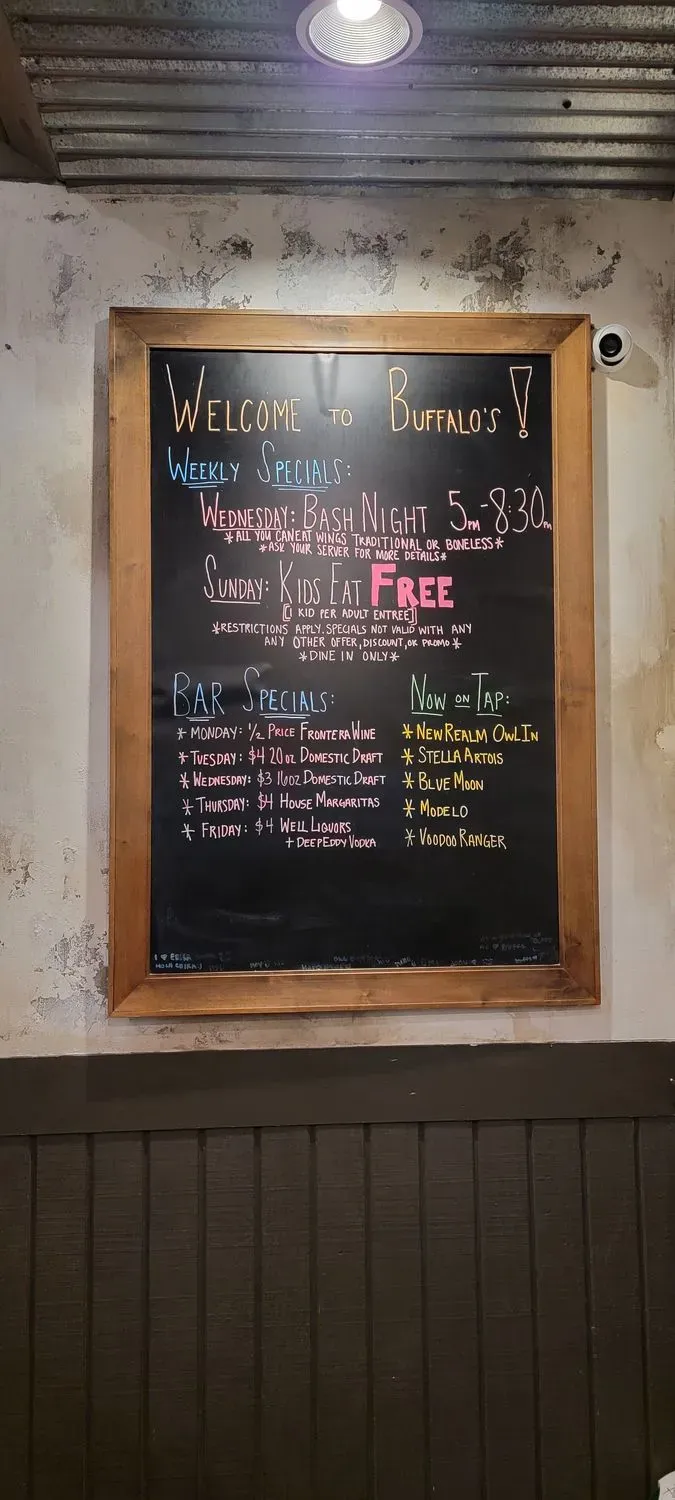 WELCOME TO BUFFALO'S!
WEEKLY SPECIALS:
WEDNESDAY: BASH NIGHT 5PM-8:30PM
*ALL YOU CANEAT WINGS TRADITIONAL OR BONELESS*
*ASK YOUR SERVER FOR MORE DETAILS*
SUNDAY: KIDS EAT FREE
[1 KID PER ADULT ENTREE]
*RESTRICTIONS APPLY. SPECIALS NOT VALID WITH ANY
ANY OTHER OFFER, DISCOUNT, OR PROMO*
*DINE IN ONLY*
BAR SPECIALS:
* MONDAY: 1/2 PRICE FRONTERA WINE
* TUESDAY: $4 20oz DOMESTIC DRAFT
* WEDNESDAY: $3 16oz DOMESTIC DRAFT
* THURSDAY: $4 HOUSE MARGARITAS
* FRIDAY: $4 WELL LIQUORS
+ DEEP EDDY VODKA
NOW ON TAP:
* NEW REALM OWL IN
* STELLA ARTOIS
* BLUE MOON
* MODELO
* VOODOO RANGER